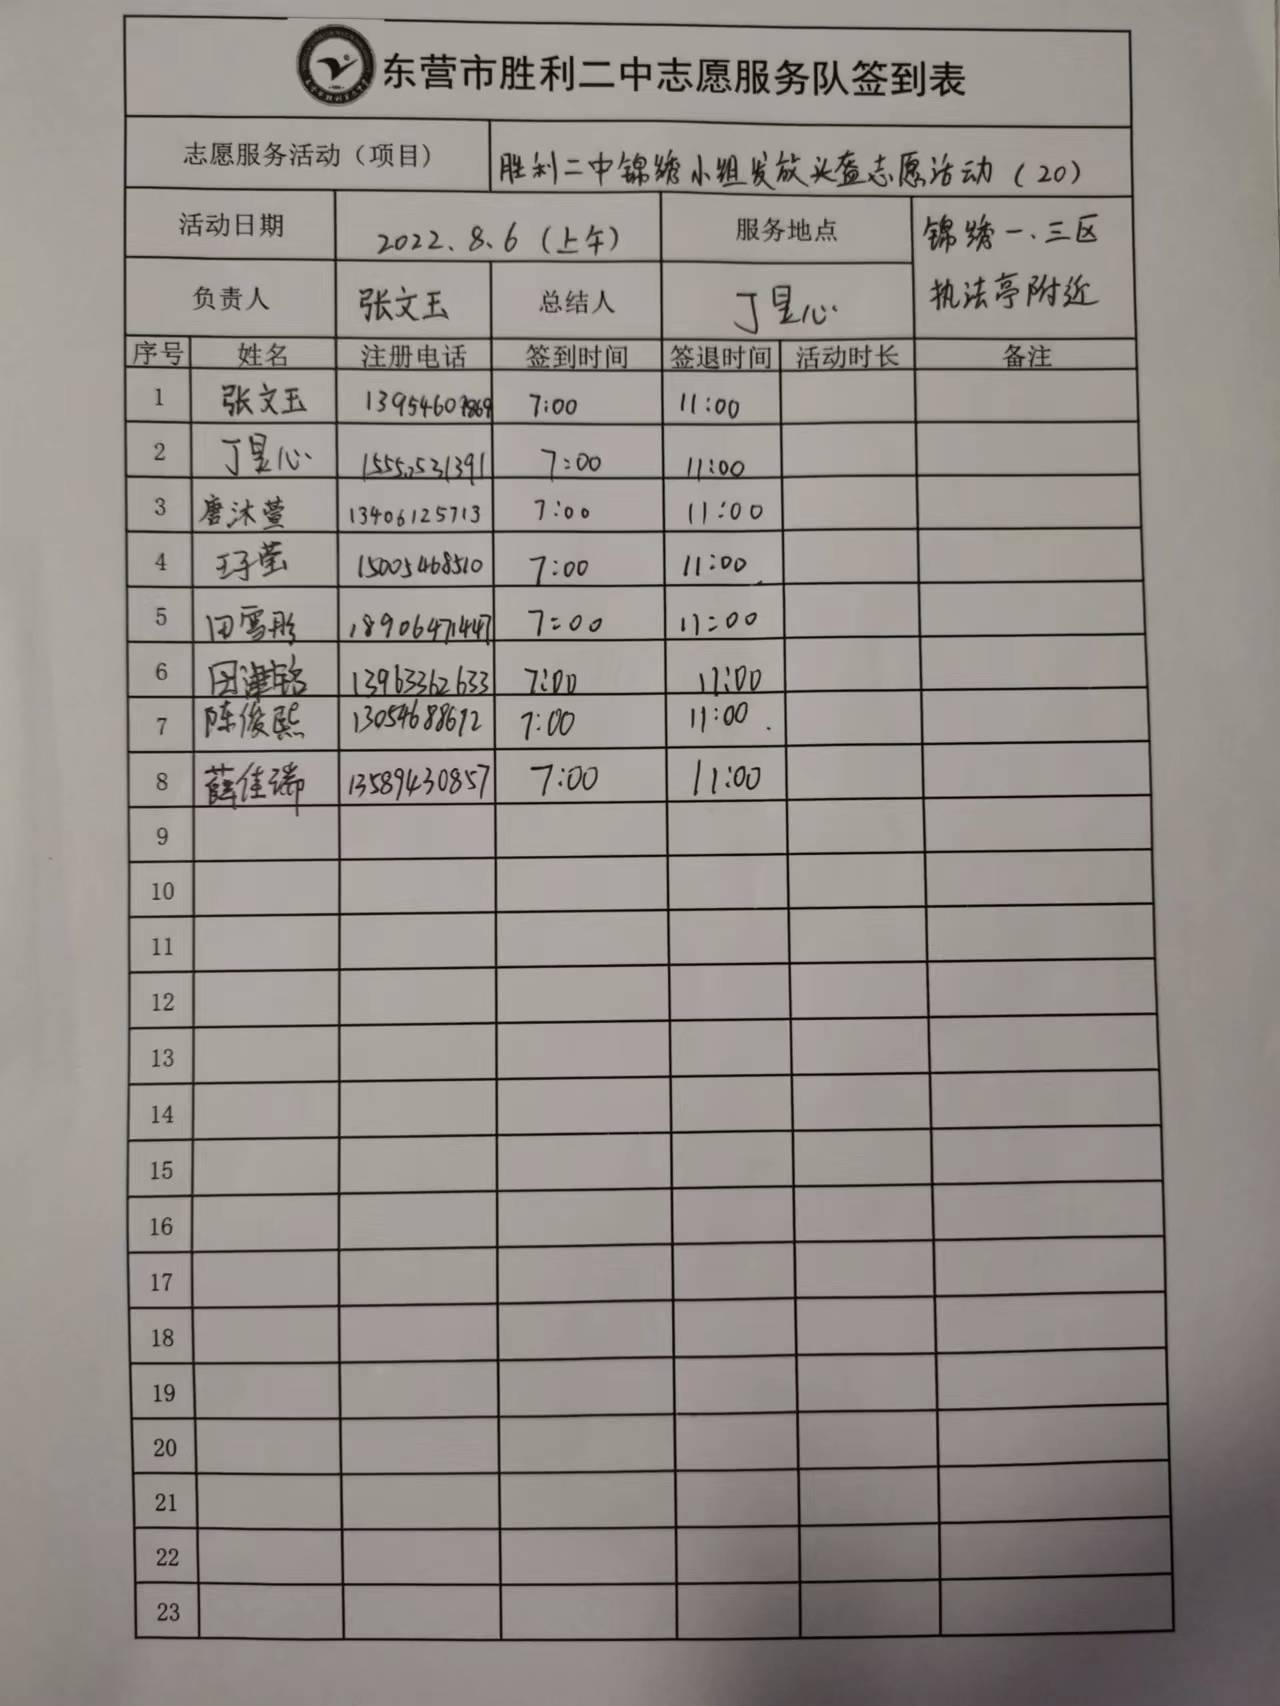 东营市胜利二中志愿服务队签到表
志愿服务活动（项目） 胜利二中锦绣小组发放头盔志愿活动（20）
活动日期 2022.8.6（上午） 服务地点 锦绣一、三区
执法亭附近
负责人 张文玉 总结人 丁昱心
序号 姓名 注册电话 签到时间 签退时间 活动时长 备注
1 张文玉 7:00 11:00
2 丁昱心 7:00 11:00
3 唐沐萱 13406125713 7:00 11:00
4 王子莹 15005468510 7:00 11:00
5 田雪彤 18906471447 7:00 11:00
6 13963362633 7:00 11:00
7 陈俊熙 13054688672 7:00 11:00
8 薛佳瑞 13589430857 7:00 11:00
9
10
11
12
13
14
15
16
17
18
19
20
21
22
23